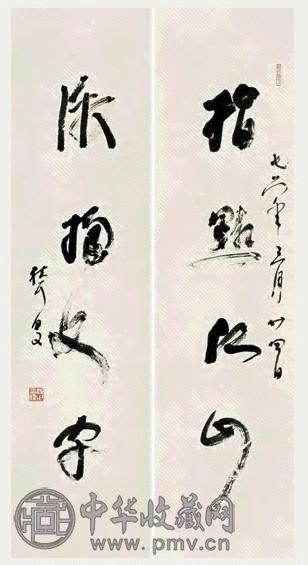 七六年三月廿四日
指點江山
激揚文字
中华收藏网
www.pmv.cn